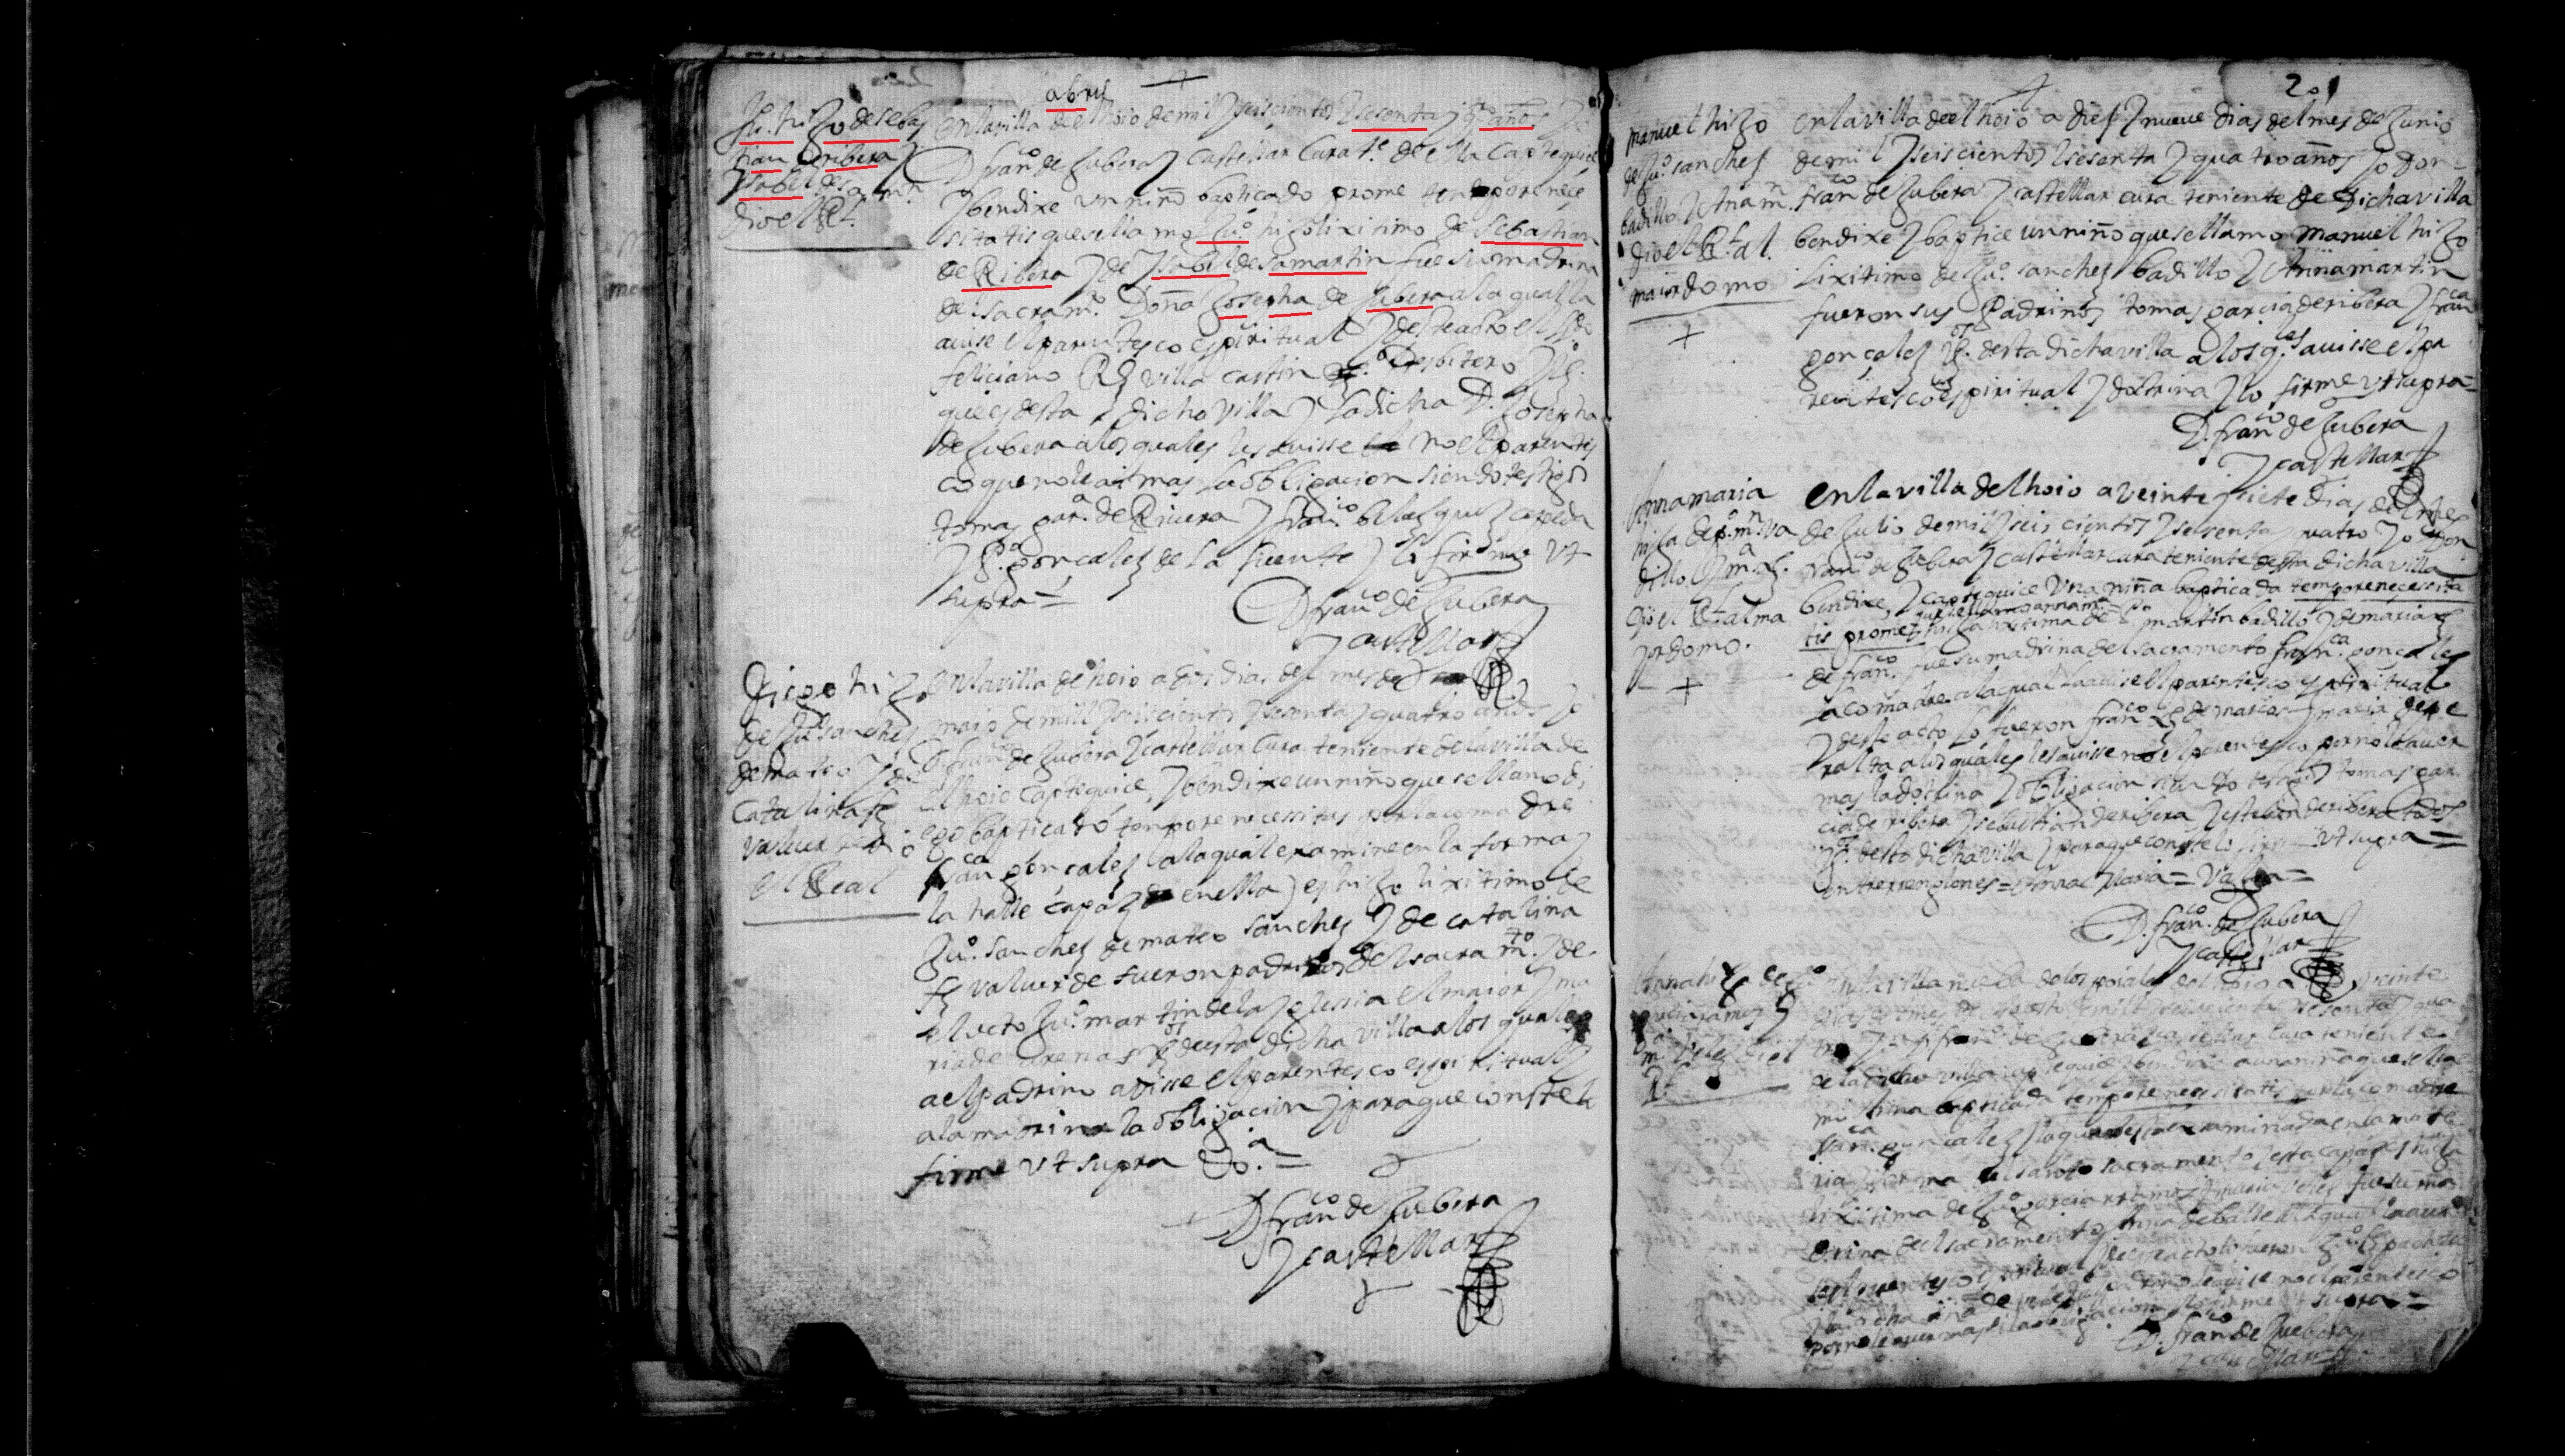 abril
Juº. hijo de sebas
tian de ribera y
ysabel de sa. mn.
dio el Rl.
en la villa de el hoio de mil y seiscientos y sesenta y qº. años yo
D franco de Zubera y castellar Cura te. de ella Captequice
y bendixe un niño bapticado prome tempore nece
sitatis que se llamo Juº. hijo lixitimo de sebastian
de Ribera y de ysabel de samartin fue su madrina
del sacramto. Doña Josepha de Zubera a la qual la
auise el parentesco espiritual y deste acto el
feliciano Rz villa castin Presbitero
que es desta dicha villa y la dicha D. Josepha
de Zubera a los quales les auisse no el parentes
co que no le ai mas la obligacion siendo testigos
tomas gara. de Riuera y franco. belasquez cepeda
y Pº. goncalez de la fuente y lo firme vt
supra =
D franco de Zubera
y castellar
Diego hijo
de Juº sanches
de mateo y de
Catalina fz
valuerde dio
el Real
en la villa de hoio a dos dias del mes de
maio de mill y seiscientos y sesenta y quatro años yo
D franco de Zubera y castellar Cura teniente de la villa de
el hoio captequice, y bendixe un niño que se llamo di
ego bapticado tempore necessitas por la coma dre
franca goncalez a la qual examine en la forma y
la halle capaz en ella y es hijo lixitimo de
Juº. sanchez de mateo sanchez y de catalina
fz valuerde fueron padrinos del sacramto. y de
el acto Juº. martin de la yglessia el maior y ma
ria de arenas vos de esta dicha villa a los quales
a el padrino avisse el parentesco espiritual y
a la madrina la obligacion y para que conste lo
firme vt supra =
D franco de Zubera
y castellar
201
manuel hijo
de Juº. sanches
badillo y Ana mn.
dio el Rl. al
maiordomo
en la villa de el hoio a dies y nueve dias del mes de Junio
de mil y seiscientos y sesenta y quatro años yo don
franco de Zubera y castellar cura teniente de dicha villa
bendixe y baptice un niño que se llamo manuel hijo
lixitimo de Juº. sanchez badillo y Anna martin
fueron sus Padrinos tomas garcia de ribera y franca
goncalez vos. desta dicha villa a los qles auisse el pa
rentesco espiritual y doctrina y lo firme vt supra =
D. franco de Zubera
y castellar
Anna maria
hija de pº. mn. va
dillo y ma. fz.
dio el Rl. al ma
yordomo.
en la villa del hoio a veinte y siete dias del mes
de Julio de mil y seis cientos y sesenta y quatro yo Don
franco de Zubera y castellar cura teniente desta dicha villa
bendixe, y captequice vna niña bapticada tempore necessita
tis prome que se llamo anna ma. hija lixitima de pº martin badillo y de maria fz
de franco. fue su madrina del sacramento franca. goncalez
la comadre a la qual la auise el parentesco espiritual
y deste acto lo fueron franco fz de marcos y maria
a los quales les auisse no el parentesco por no le auer
mas la doctrina y obligacion siendo testigos tomas gar
cia de ribera y sebastian de ribera y esteban de ribera todos
vos. desta dicha villa y para que conste lo firme vt supra =
entrerrenglones = Anna Maria = Valga =
D. franco. de Zubera
y castellar
Anna hija de Juº
garcia ramos y
ma. Velez dio el
Rl.
en la villa nueva de los poiales del hoio a veinte
dias del mes de Agosto de mill y seiscientos y sesenta y qua
tro yo D. franco de Zubera y castellar Cura teniente
de la dicha villa captequice y bendixe a una niña que se lla
mo Anna bapticada tempore necessitatis por la comadre
franca. goncalez la qual esta examinada en la mate
ria y forma del santo sacramento y esta capaz y hija
lixitima de Juº garcia ramos y maria Velez fue su ma
drina del sacramento
por no le auer mas de la obligacion y lo firme vt supra =
D. franco de Zubera
y castellar